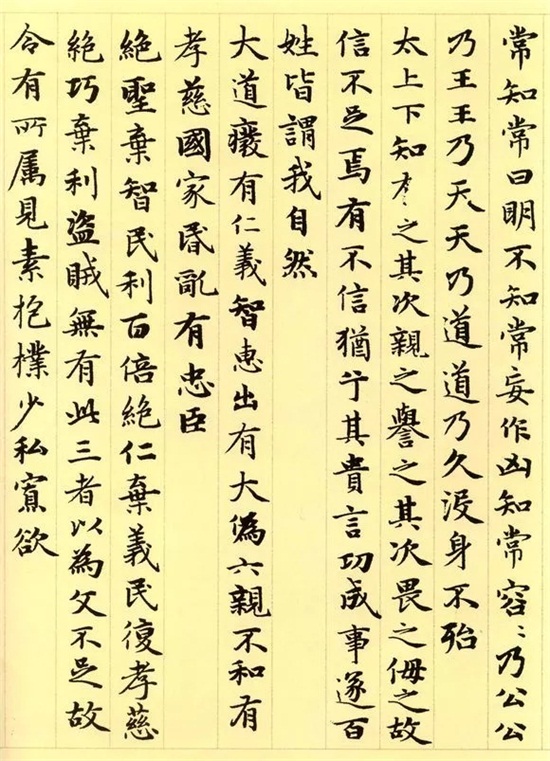 常知常曰明不知常妄作凶知常容〻乃公公
乃王王乃天天乃道道乃久没身不殆
太上下知有之其次親之譽之其次畏之侮之故
信不足焉有不信猶兮其貴言功成事遂百
姓皆謂我自然
大道廢有仁義智惠出有大偽六親不和有
孝慈國家昏亂有忠臣
絕聖棄智民利百倍絕仁棄義民復孝慈
絕巧棄利盜賊無有此三者以為文不足故
令有所屬見素抱樸少私寡欲